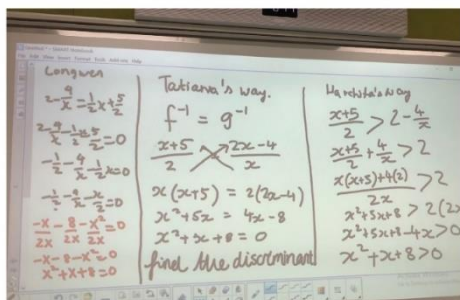 Longwen
2-4/x=1/2x+5/2
2-4/x-1/2x-5/2=0
-1/2-4/x-1/2x=0
-1/2-4/x-x/2=0
-x/2x-8/2x-x²/2x=0
-x-8-x²=0
x²+x+8=0
Tatiana's way.
f⁻¹ = g⁻¹
x+5/2 2x-4/x
x(x+5) = 2(2x-4)
x²+5x = 4x-8
x²+x+8=0
find the discriminant
Harchita's way
x+5/2 > 2-4/x
x+5/2+4/x>2
x(x+5)+4(2)/2x>2
x²+5x+8>2(2x
x²+5x+8-4x>0
x²+x+8>0